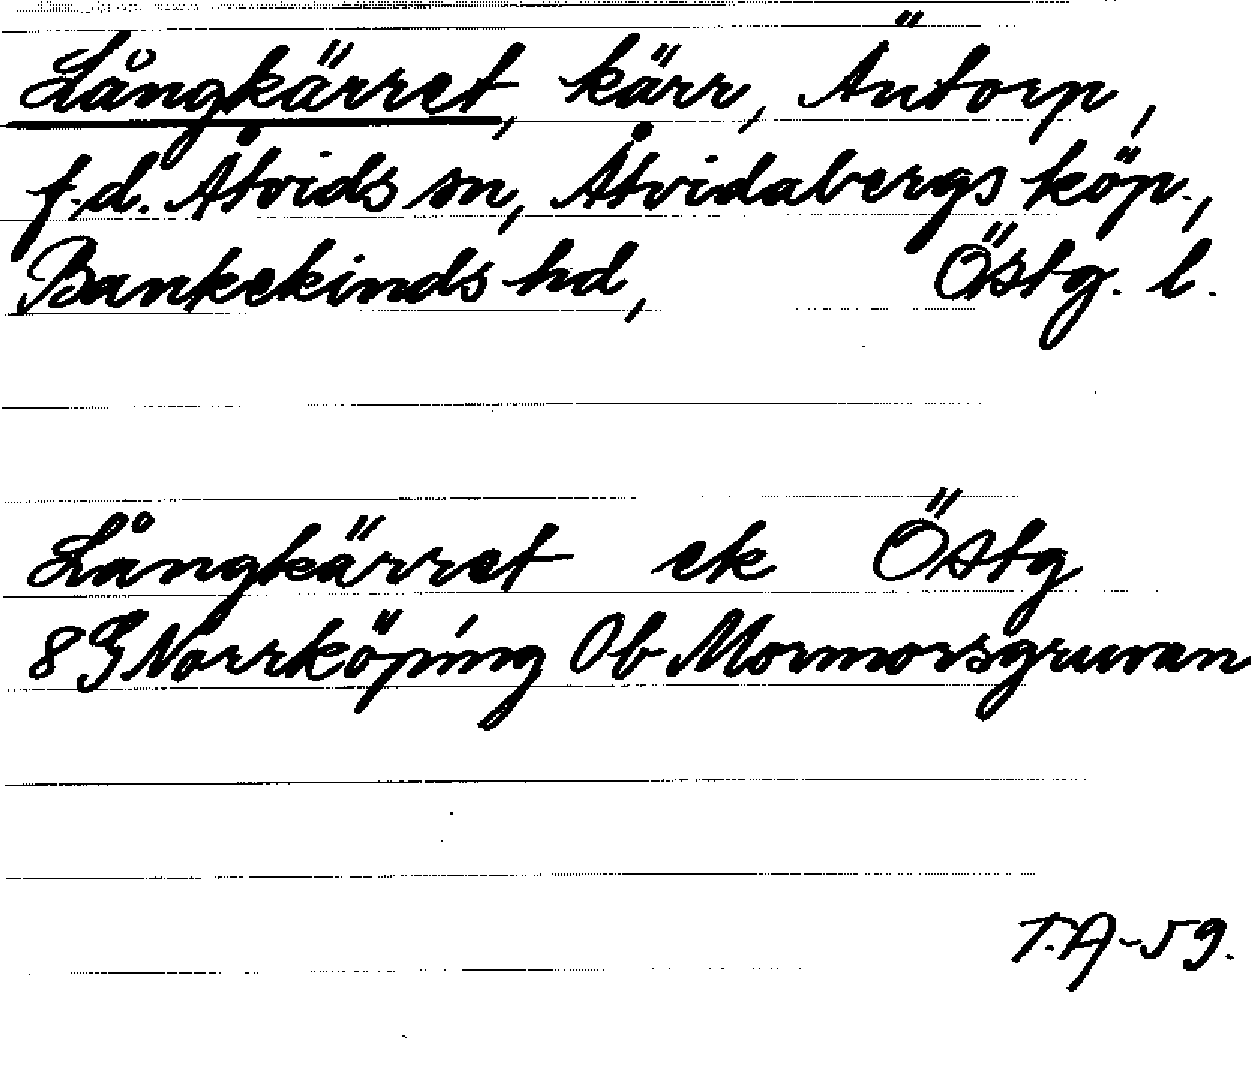 Långkärret, kärr, Äntorp,
f.d. Åtvids sn, Åtvidabergs köp.,
Bankekinds hd, Östg. l.
Långkärret ek Östg
8G Norrköping Ob Mormorsgruvan
T.A-59.